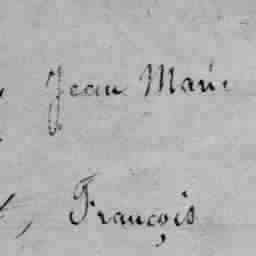 Jean Marie
, François